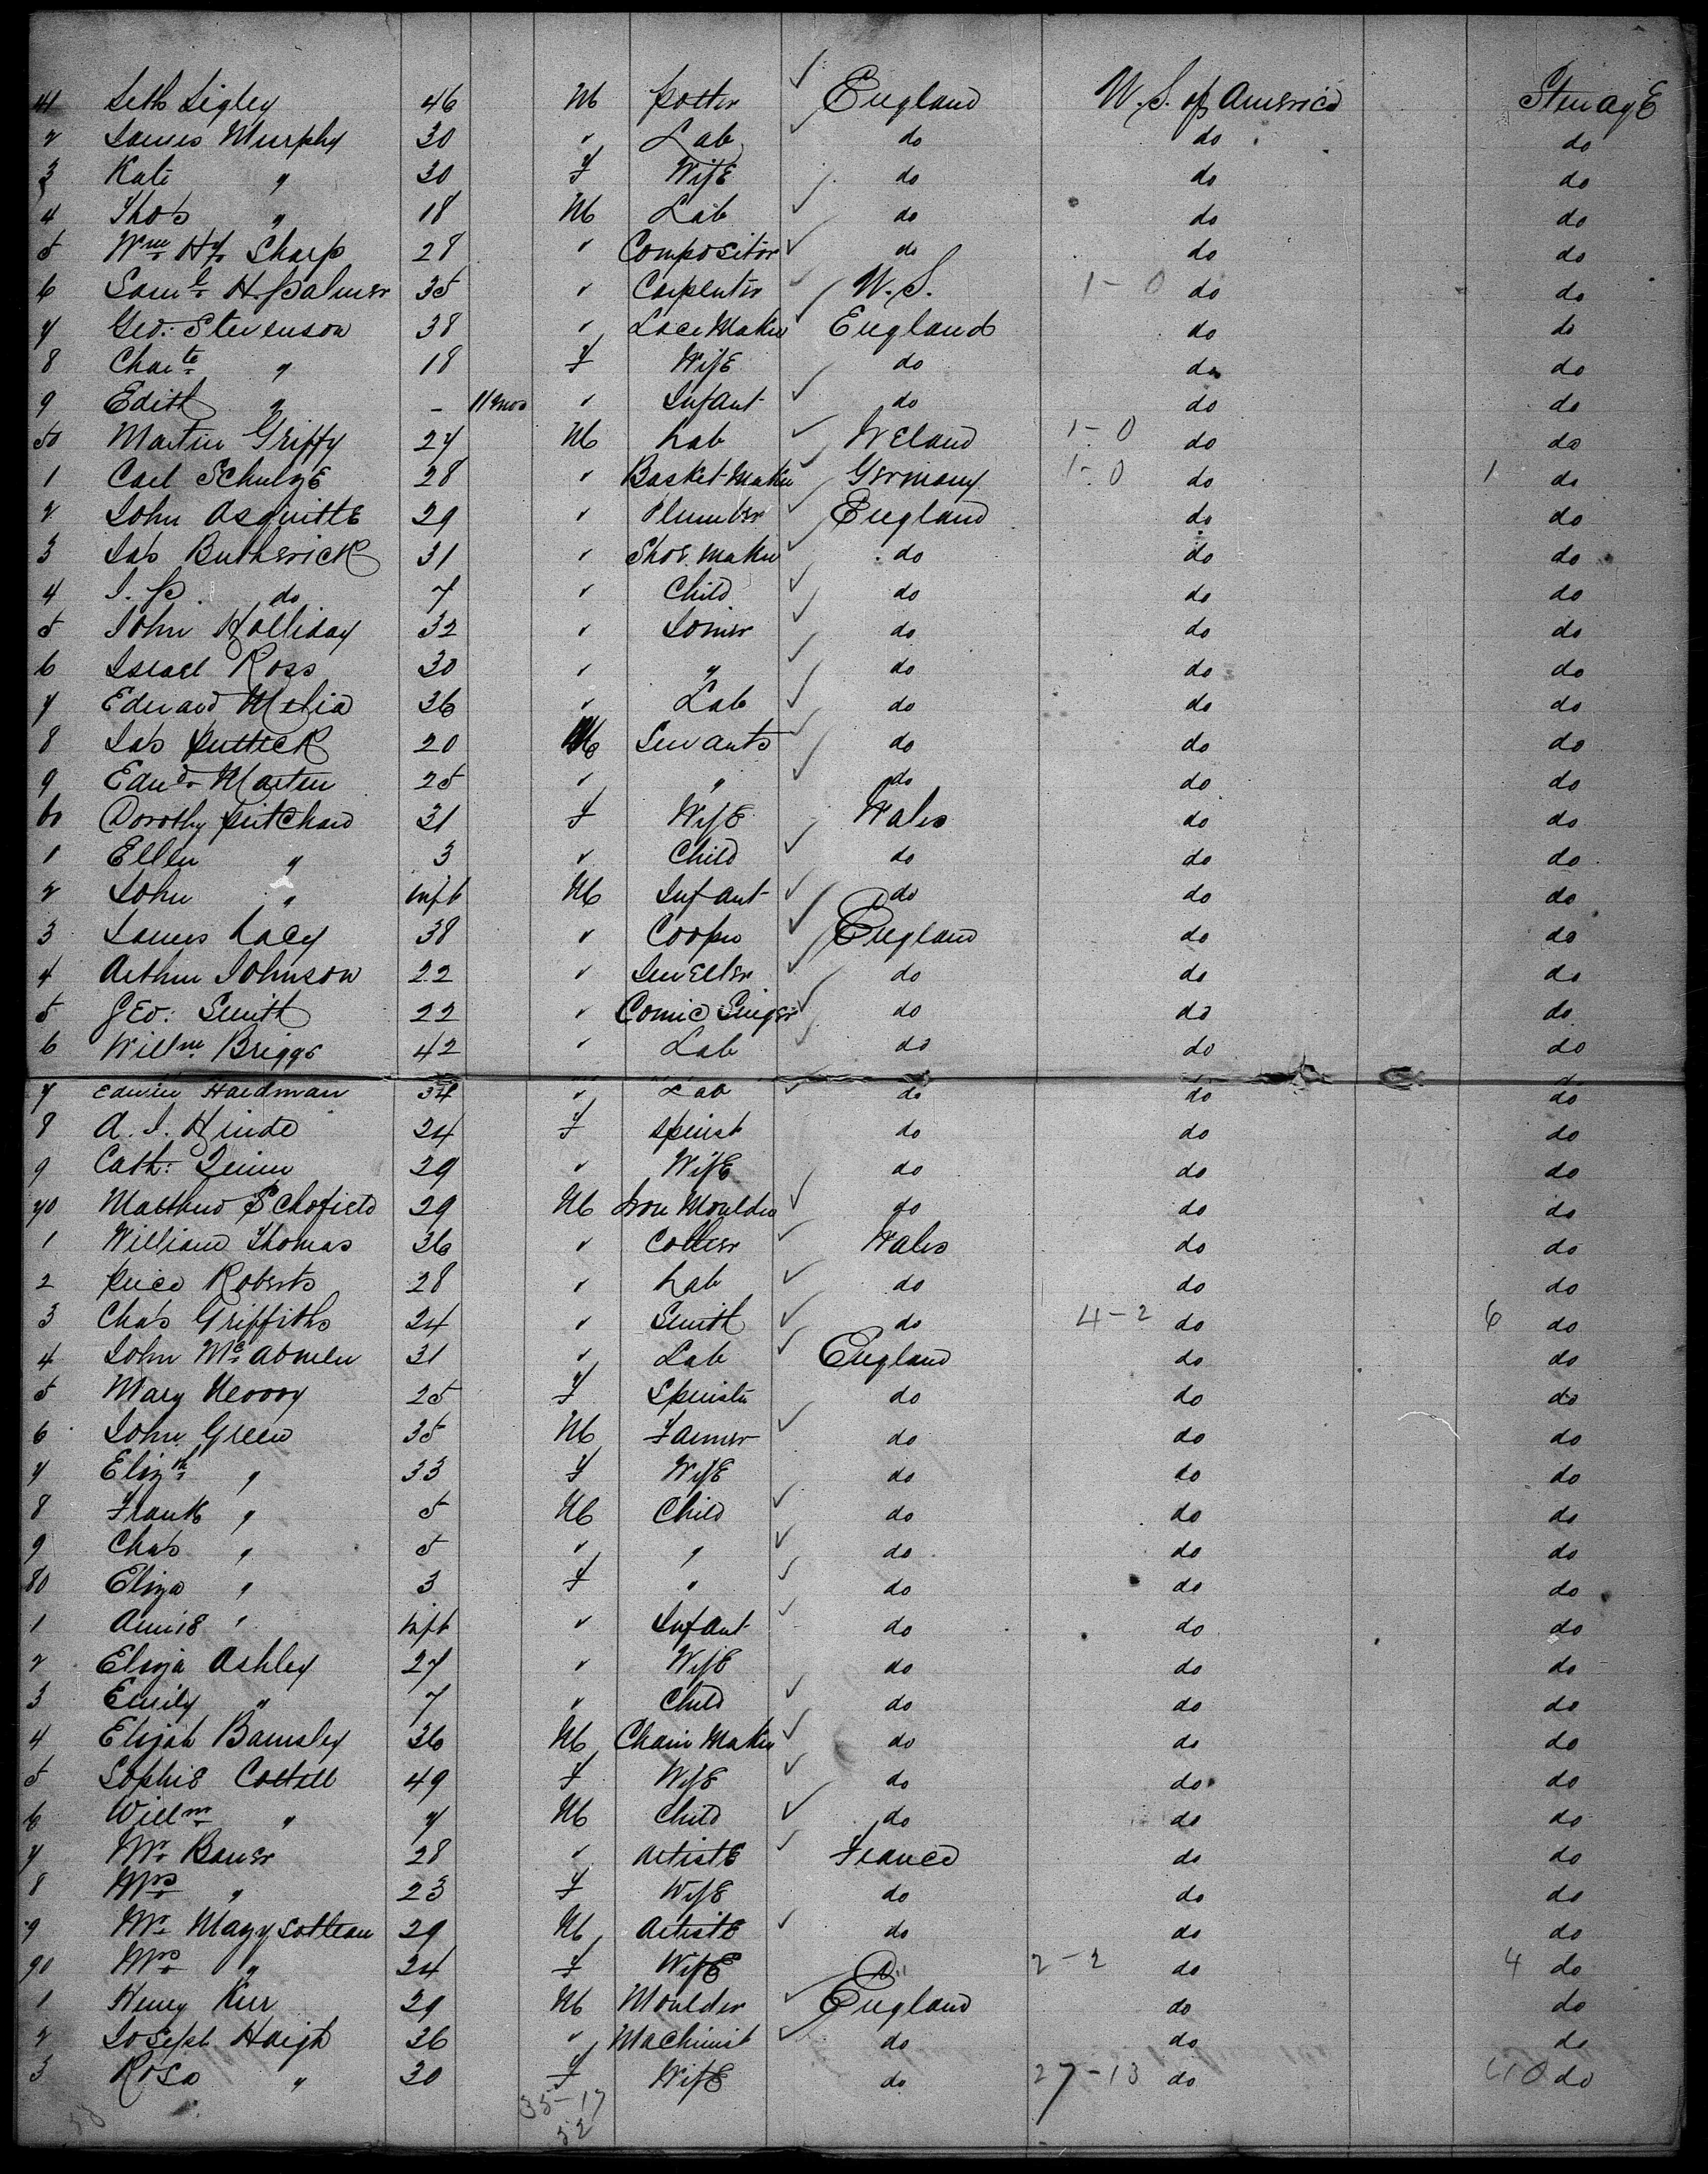 41 Seth Sigley 46 M Potter ✓ England U.S. of America SteuagE
2 James Murphy 30 " Lab ✓ do do do
3 Kate " 30 F WifE do do do
4 Thos " 18 M Lab ✓ do do do
5 Wm Hy Sharp 28 " Compositor ✓ do do do
6 Saml H. Palmer 35 " Carpenter ✓ U.S. 1-0 do do
7 Geo: Stevenson 38 " Lace Maker ✓ England do do
8 Charte " 18 F WifE do do do
9 Edith " - 11 mos " Infant ✓ do do do
50 Martin Griffy 27 M Lab ✓ Ireland 1-0 do do
1 Carl SchulzE 28 " Basket-Maker ✓ Germany 1-0 do 1 do
2 John AsquittE 29 " Plumber ✓ England do do
3 Jas Butherick 31 " Shoe Maker ✓ do do do
4 J. P. do 7 " Child ✓ do do do
5 John Holliday 32 " Joiner ✓ do do do
6 Israel Ross 30 " " ✓ do do do
7 Edward Melia 36 " Lab ✓ do do do
8 Jas Puttick 20 M Servants ✓ do do do
9 Edwd Martin 25 " " ✓ do do do
60 Dorothy Pritchard 31 F WifE Wales do do
1 Ellen " 3 " Child ✓ do do do
2 John " Inft M Infant ✓ do do do
3 James Lacy 38 " Cooper ✓ England do do
4 Arthur Johnson 22 " Jeweller ✓ do do do
5 Geo: Smith 22 " Comic Singer ✓ do do do
6 Willm Briggs 42 " Lab ✓ do do do
7 Edwin Hardman 34 " Lab ✓ do do do
8 A. J. Hinde 24 F Spinst do do do
9 Cath: Quinn 29 " WifE do do do
70 Matthew Schofield 29 M Iron Moulder ✓ do do do
1 William Thomas 36 " Collier ✓ Wales do do
2 Price Roberts 28 " Lab ✓ do do do
3 Chas Griffiths 24 " Smith ✓ do 4-2 do 6 do
4 John Mc 31 " Lab ✓ England do do
5 Mary 25 F Spinster do do do
6 John Green 35 M Farmer ✓ do do do
7 Elizth " 33 F WifE do do do
8 Frank " 5 M Child ✓ do do do
9 Chas " 5 " " ✓ do do do
80 Eliza " 3 F " ✓ do do do
1 AnniE " Inft " Infant ✓ do do do
2 Eliza Ashley 27 " WifE do do do
3 Emily " 7 " Child ✓ do do do
4 Elijah Barnsley 36 M Chain Maker ✓ do do do
5 SophiE Cottell 49 F WifE ✓ do do do
6 Willm " 7 M Child ✓ do do do
7 Mr Bauer 28 " ArtistE ✓ France do do
8 Mrs " 23 F WifE do do do
9 Mr 29 M ArtistE ✓ do do do
90 Mrs " 24 F WifE do 2-2 do 4 do
1 Henry Kerr 29 M Moulder ✓ England do do
2 Joseph Haigh 26 " Machinist ✓ do do do
3 Rosa " 30 F WifE do 27-13 do 40 do
35-17
52